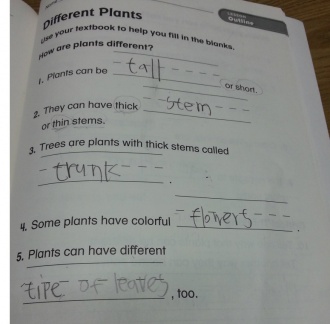 Different Plants
LESSON
Outline
Use your textbook to help you fill in the blanks.
How are plants different?
1. Plants can be tall or short.
2. They can have thick stem
or thin stems.
3. Trees are plants with thick stems called
trunk.
4. Some plants have colorful flowers.
5. Plants can have different
tipe of leaves, too.